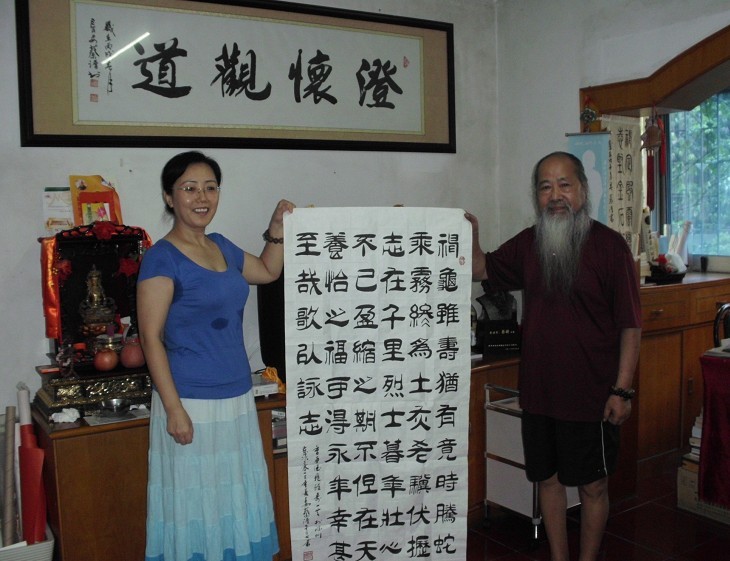 澄懷觀道
神龜雖壽猶有竟時騰蛇
乘霧終為土灰老驥伏櫪
志在千里烈士暮年壯心
不已盈縮之期不但在天
養怡之福可得永年幸甚
至哉歌以詠志